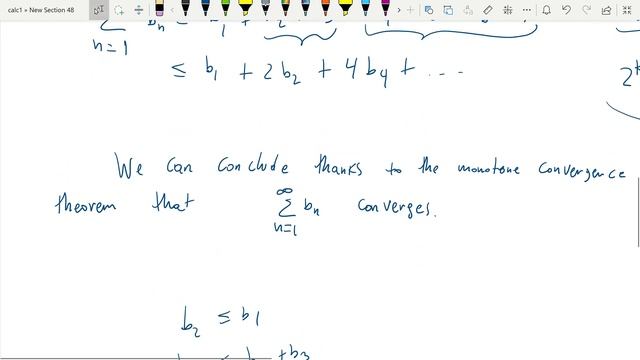 calc1 » New Section 48
n=1
≤ b₁ + 2b₂ + 4b₄ + ...
We can conclude thanks to the monotone convergence
theorem that ∞ ∑ n=1 bₙ converges.
b₂ ≤ b₁
+b₃